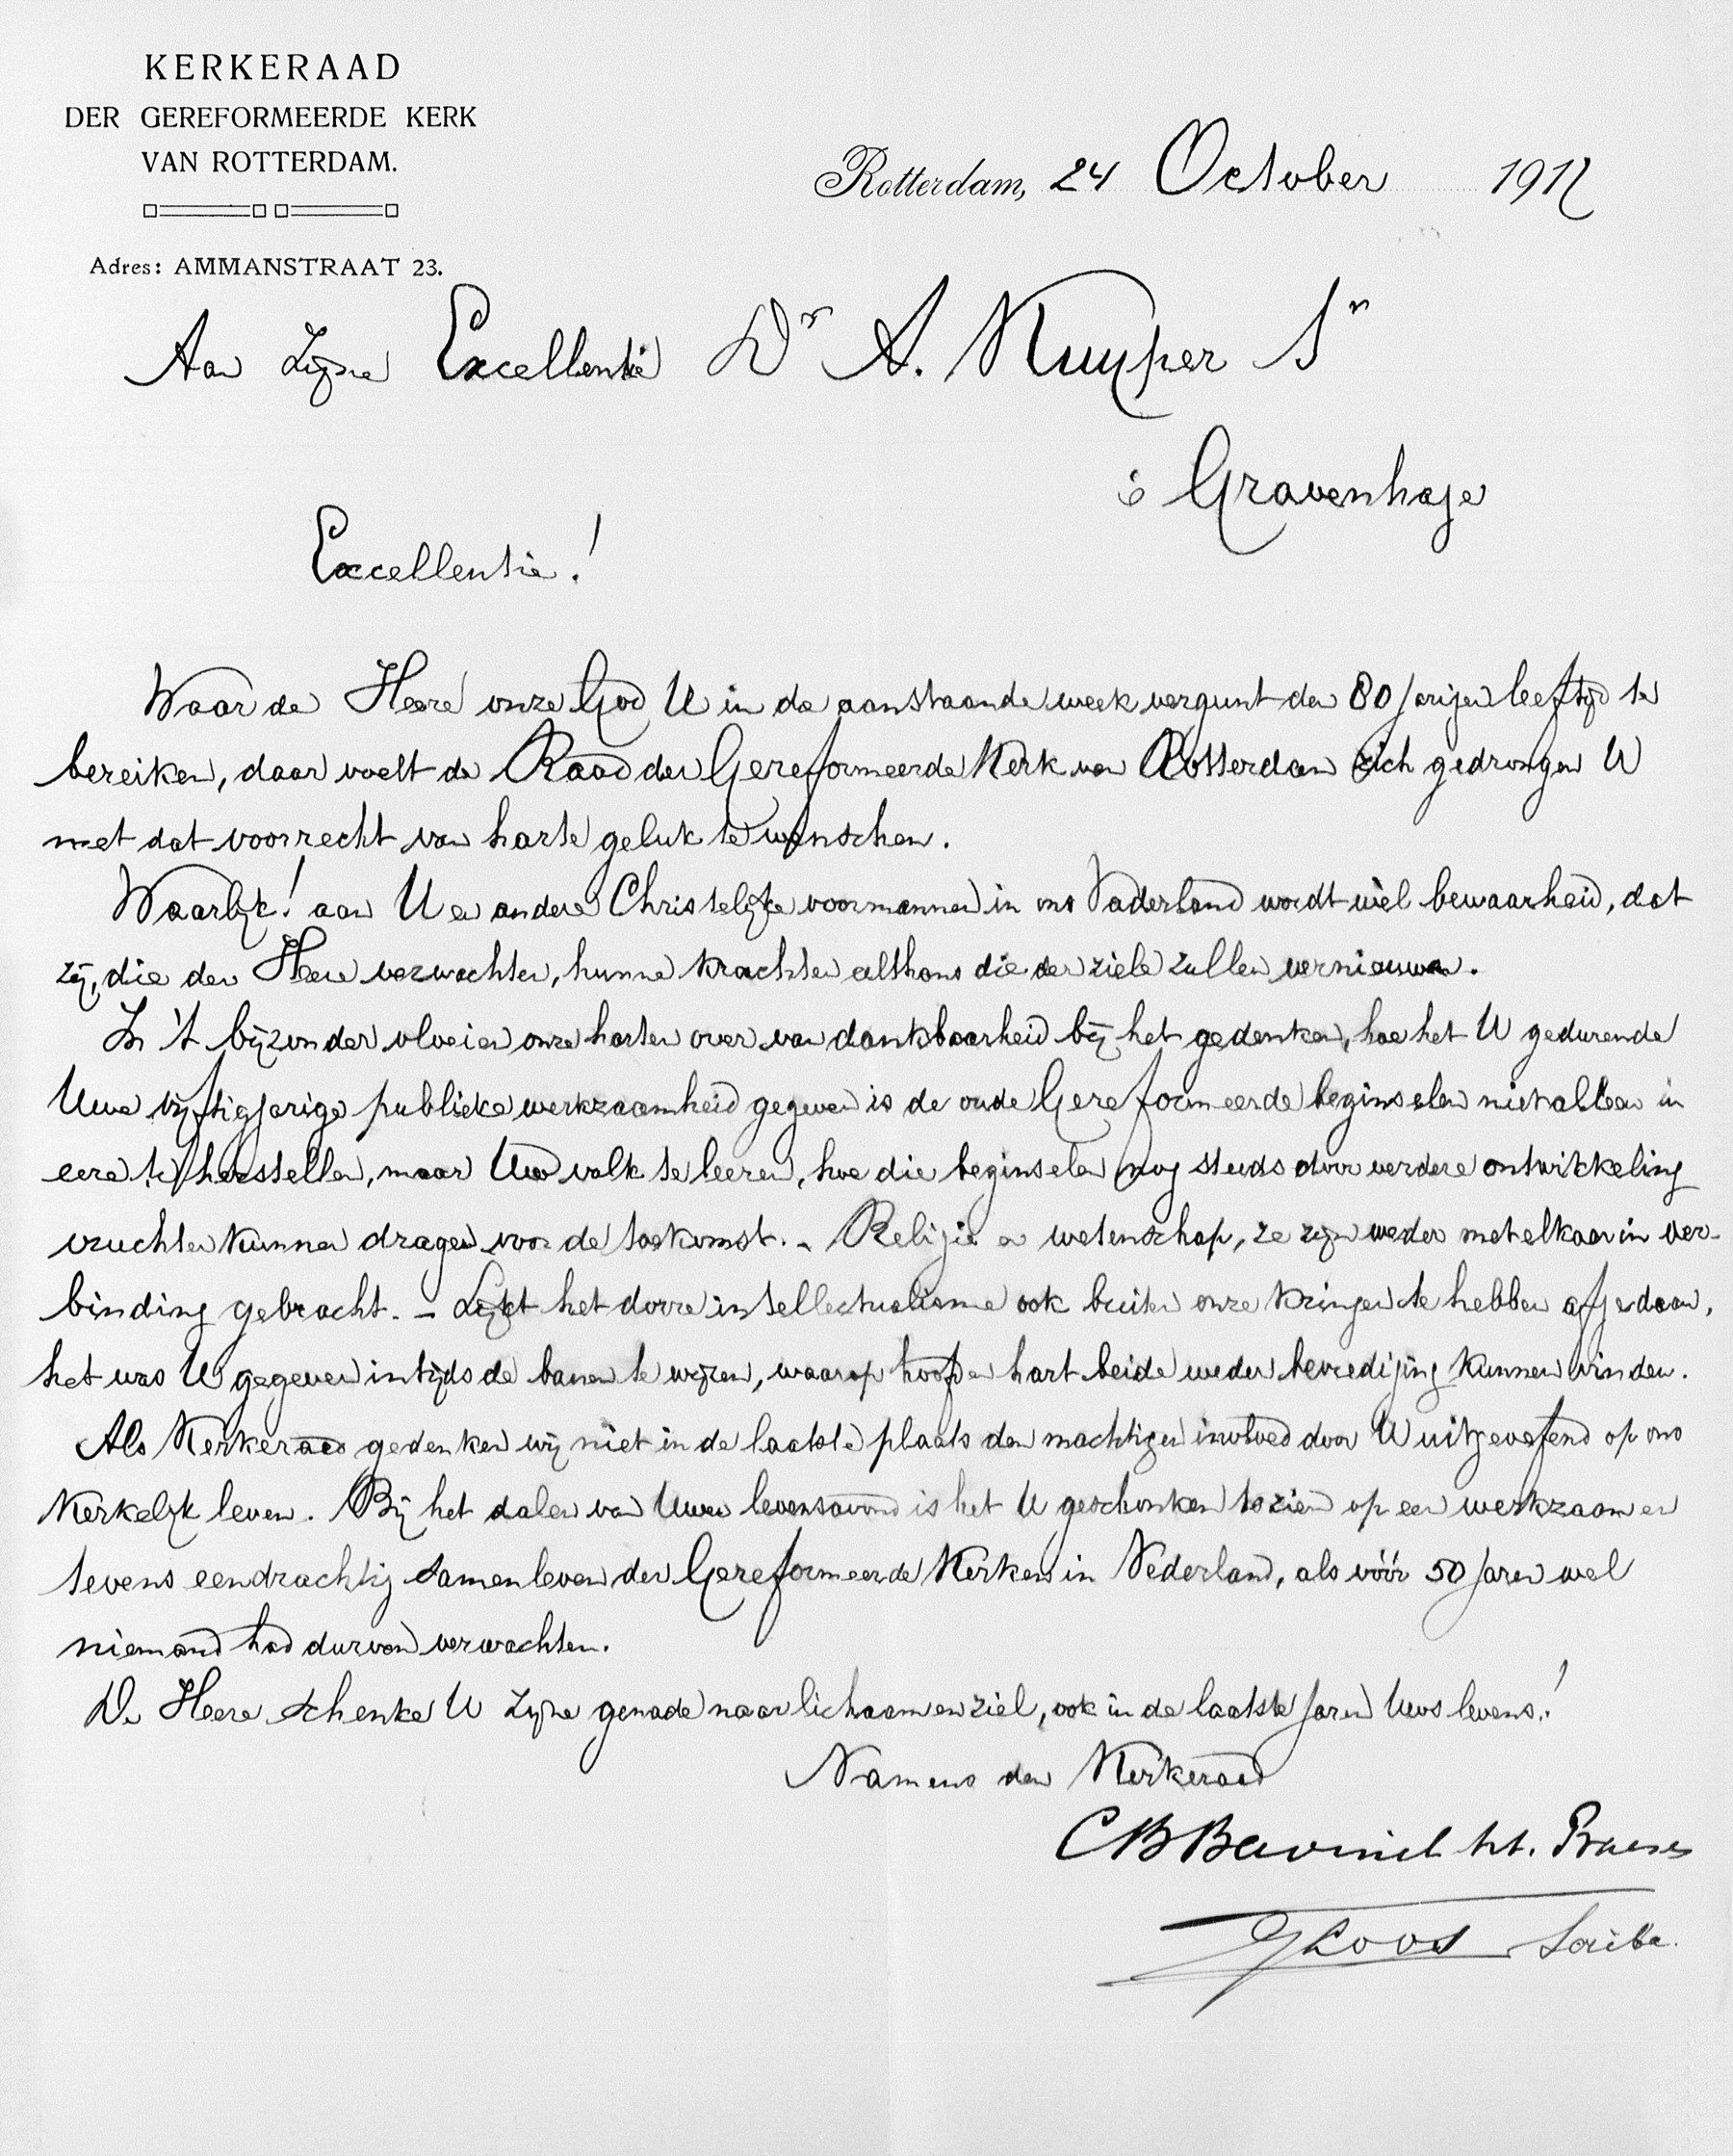 KERKERAAD
DER GEREFORMEERDE KERK
VAN ROTTERDAM.
Adres: AMMANSTRAAT 23.
Rotterdam, 24 October 1917
Aan Zijne Excellentie Dr A. Kuyper Sr
's Gravenhage
Excellentie!
Waar de Heere onze God U in de aanstaande week vergunt den 80 jarigen leeftijd te
bereiken, daar voelt de Raad der Gereformeerde Kerk van Rotterdam zich gedrongen U
met dat voorrecht van harte geluk te wenschen.
Waarlijk! aan U en andere Christelijke voormannen in ons Vaderland wordt wèl bewaarheid, dat
zij, die den Heere verwachten, hunne krachten althans die der ziele zullen vernieuwen.
In 't bijzonder vloeien onze harten over van dankbaarheid bij het gedenken, hoe het U gedurende
Uwe vijftigjarige publieke werkzaamheid gegeven is de oude Gereformeerde beginselen niet alleen in
eere te herstellen, maar Uw volk te leeren, hoe die beginselen nog steeds door verdere ontwikkeling
vruchten kunnen dragen voor de toekomst. - Religie en wetenschap, ze zijn weder met elkaar in ver-
binding gebracht. - Lijkt het dorre intellectualisme ook buiten onze kringen te hebben afgedaan,
het was U gegeven intijds de banen te wijzen, waarop hoofd en hart beide weder bevrediging kunnen vinden.
Als Kerkeraad gedenken wij niet in de laatste plaats den machtigen invloed door U uitgeoefend op ons
Kerkelijk leven. Bij het dalen van Uwen levensavond is het U geschonken te zien op een werkzaam en
tevens eendrachtig samenleven der Gereformeerde Kerken in Nederland, als vóór 50 jaren wel
niemand had durven verwachten.
De Heere schenke U Zijne genade naar lichaam en ziel, ook in de laatste jaren Uws levens!
Namens den Kerkeraad
CB Bavinck h.t. Praeses
Koos Scriba.